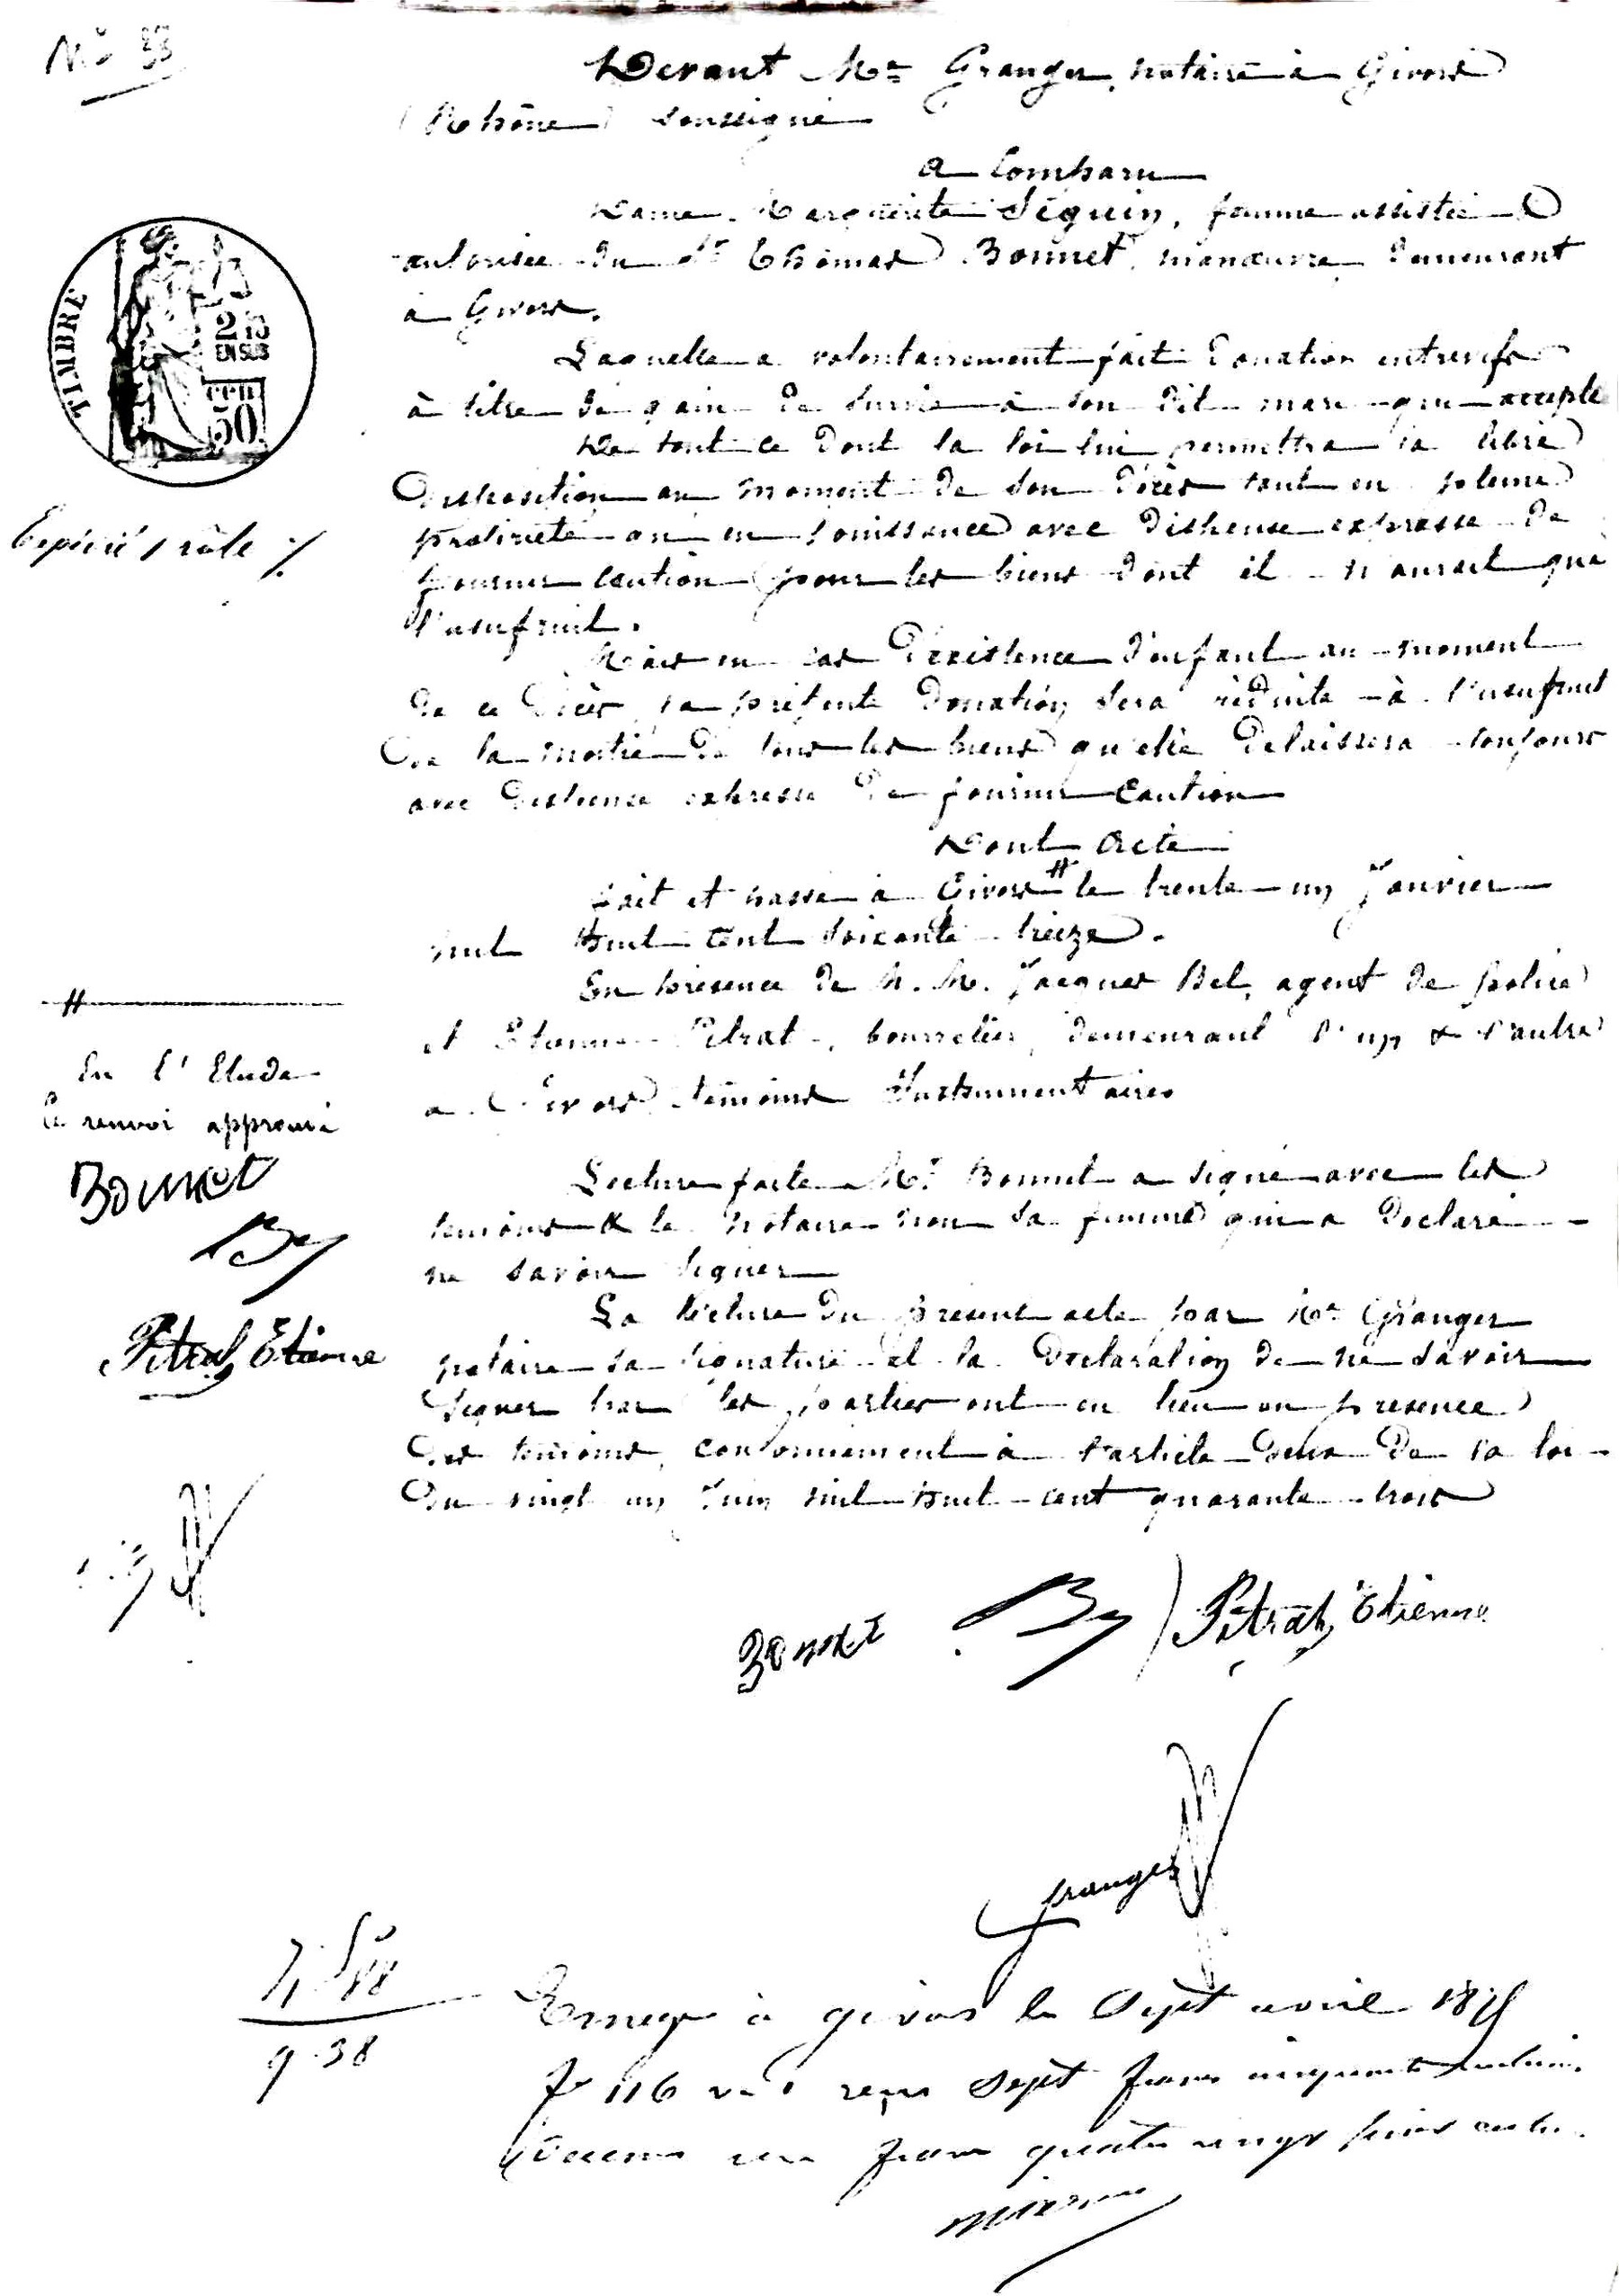 N° 33
Devant Me Granger, notaire à Givors
(Rhône) soussigné
a Comparu
Dame Marguerite Séguin, femme assistée &
autorisée du Sr Thomas Bonnet, manœuvre demeurant
à Givors.
Laquelle a volontairement fait donation entrevifs
à titre de gain de survie à son dit mari qui accepte
De tout ce dont la loi lui permettra la libre
disposition au moment de son décès tant en pleine
propriété ou en jouissance avec dispense expresse de
fournir caution pour les biens dont il n'aurait que
l'usufruit.
Mais en cas d'existence d'enfant au moment
de ce décès, la présente donation sera réduite à l'usufruit
de la moitié de tous les biens qu'elle delaissera toujours
avec dispense expresse de fournir caution
Dont Acte
Fait et passé à Givors # le trente un Janvier
mil huit cent soixante treize.
En présence de M.M. Jacques Bel, agent de police
et Etienne Pitrat, bourrelier, demeurant l'un & l'autre
a Givors témoins Instrumentaires
Lecture faite Mr Bonnet a signé avec les
témoins & le notaire non sa femme qui a déclaré
ne savoir signer
La lecture du présent acte par Me Granger
notaire la signature et la déclaration de ne savoir
signer par les parties ont eu lieu en présence
des témoins, conformément à l'article deux de la loi
du vingt un Juin mil huit cent quarante trois
TIMBRE
2/10
EN SUS
50
Expédié 1 rôle /.
#
En l'Etude
Ce renvoi approuvé
Bonnet
Pitrat Etienne
Bonnet
Pitrat, Etienne
Granger
9.38
à givors le Sept avril
f° 116 reçu Sept francs cinquante centimes
un franc quatre vingt huit cent.